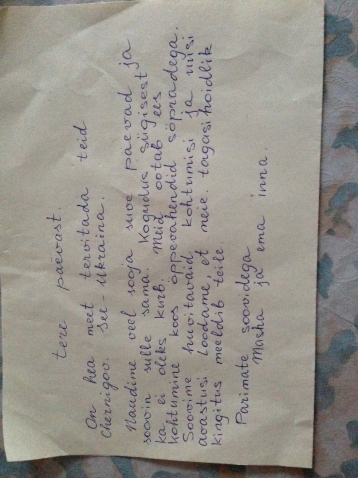 tere päevast.
On hea meet tervitada teid
Chernigov. see-Ukraina.
Naudime veel sooja suve päevad ja
soovin sulle sama. Kogudus sügisest
ka ei oleks kurb. Meid ootab ees
kohtumine koos õppevahendid sõpradega.
Soovime huvitavaid kohtumisi ja uusi
avastusi Loodame, et meie tagasihoidlik
kingitus meeldib teile
Parimate soovidega
Masha ja ema inna.